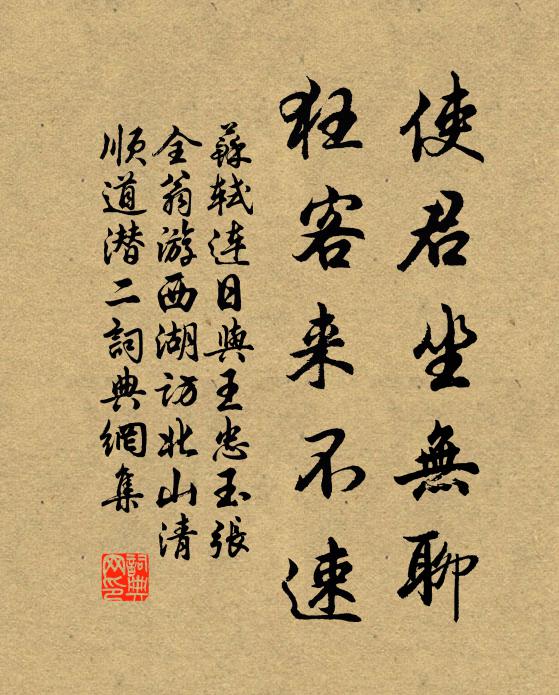 使君坐無聊
狂客来不速
蘇軾连日與王忠玉張
全翁游西湖访北山清
顺道潜二詞典網集
詞典網印